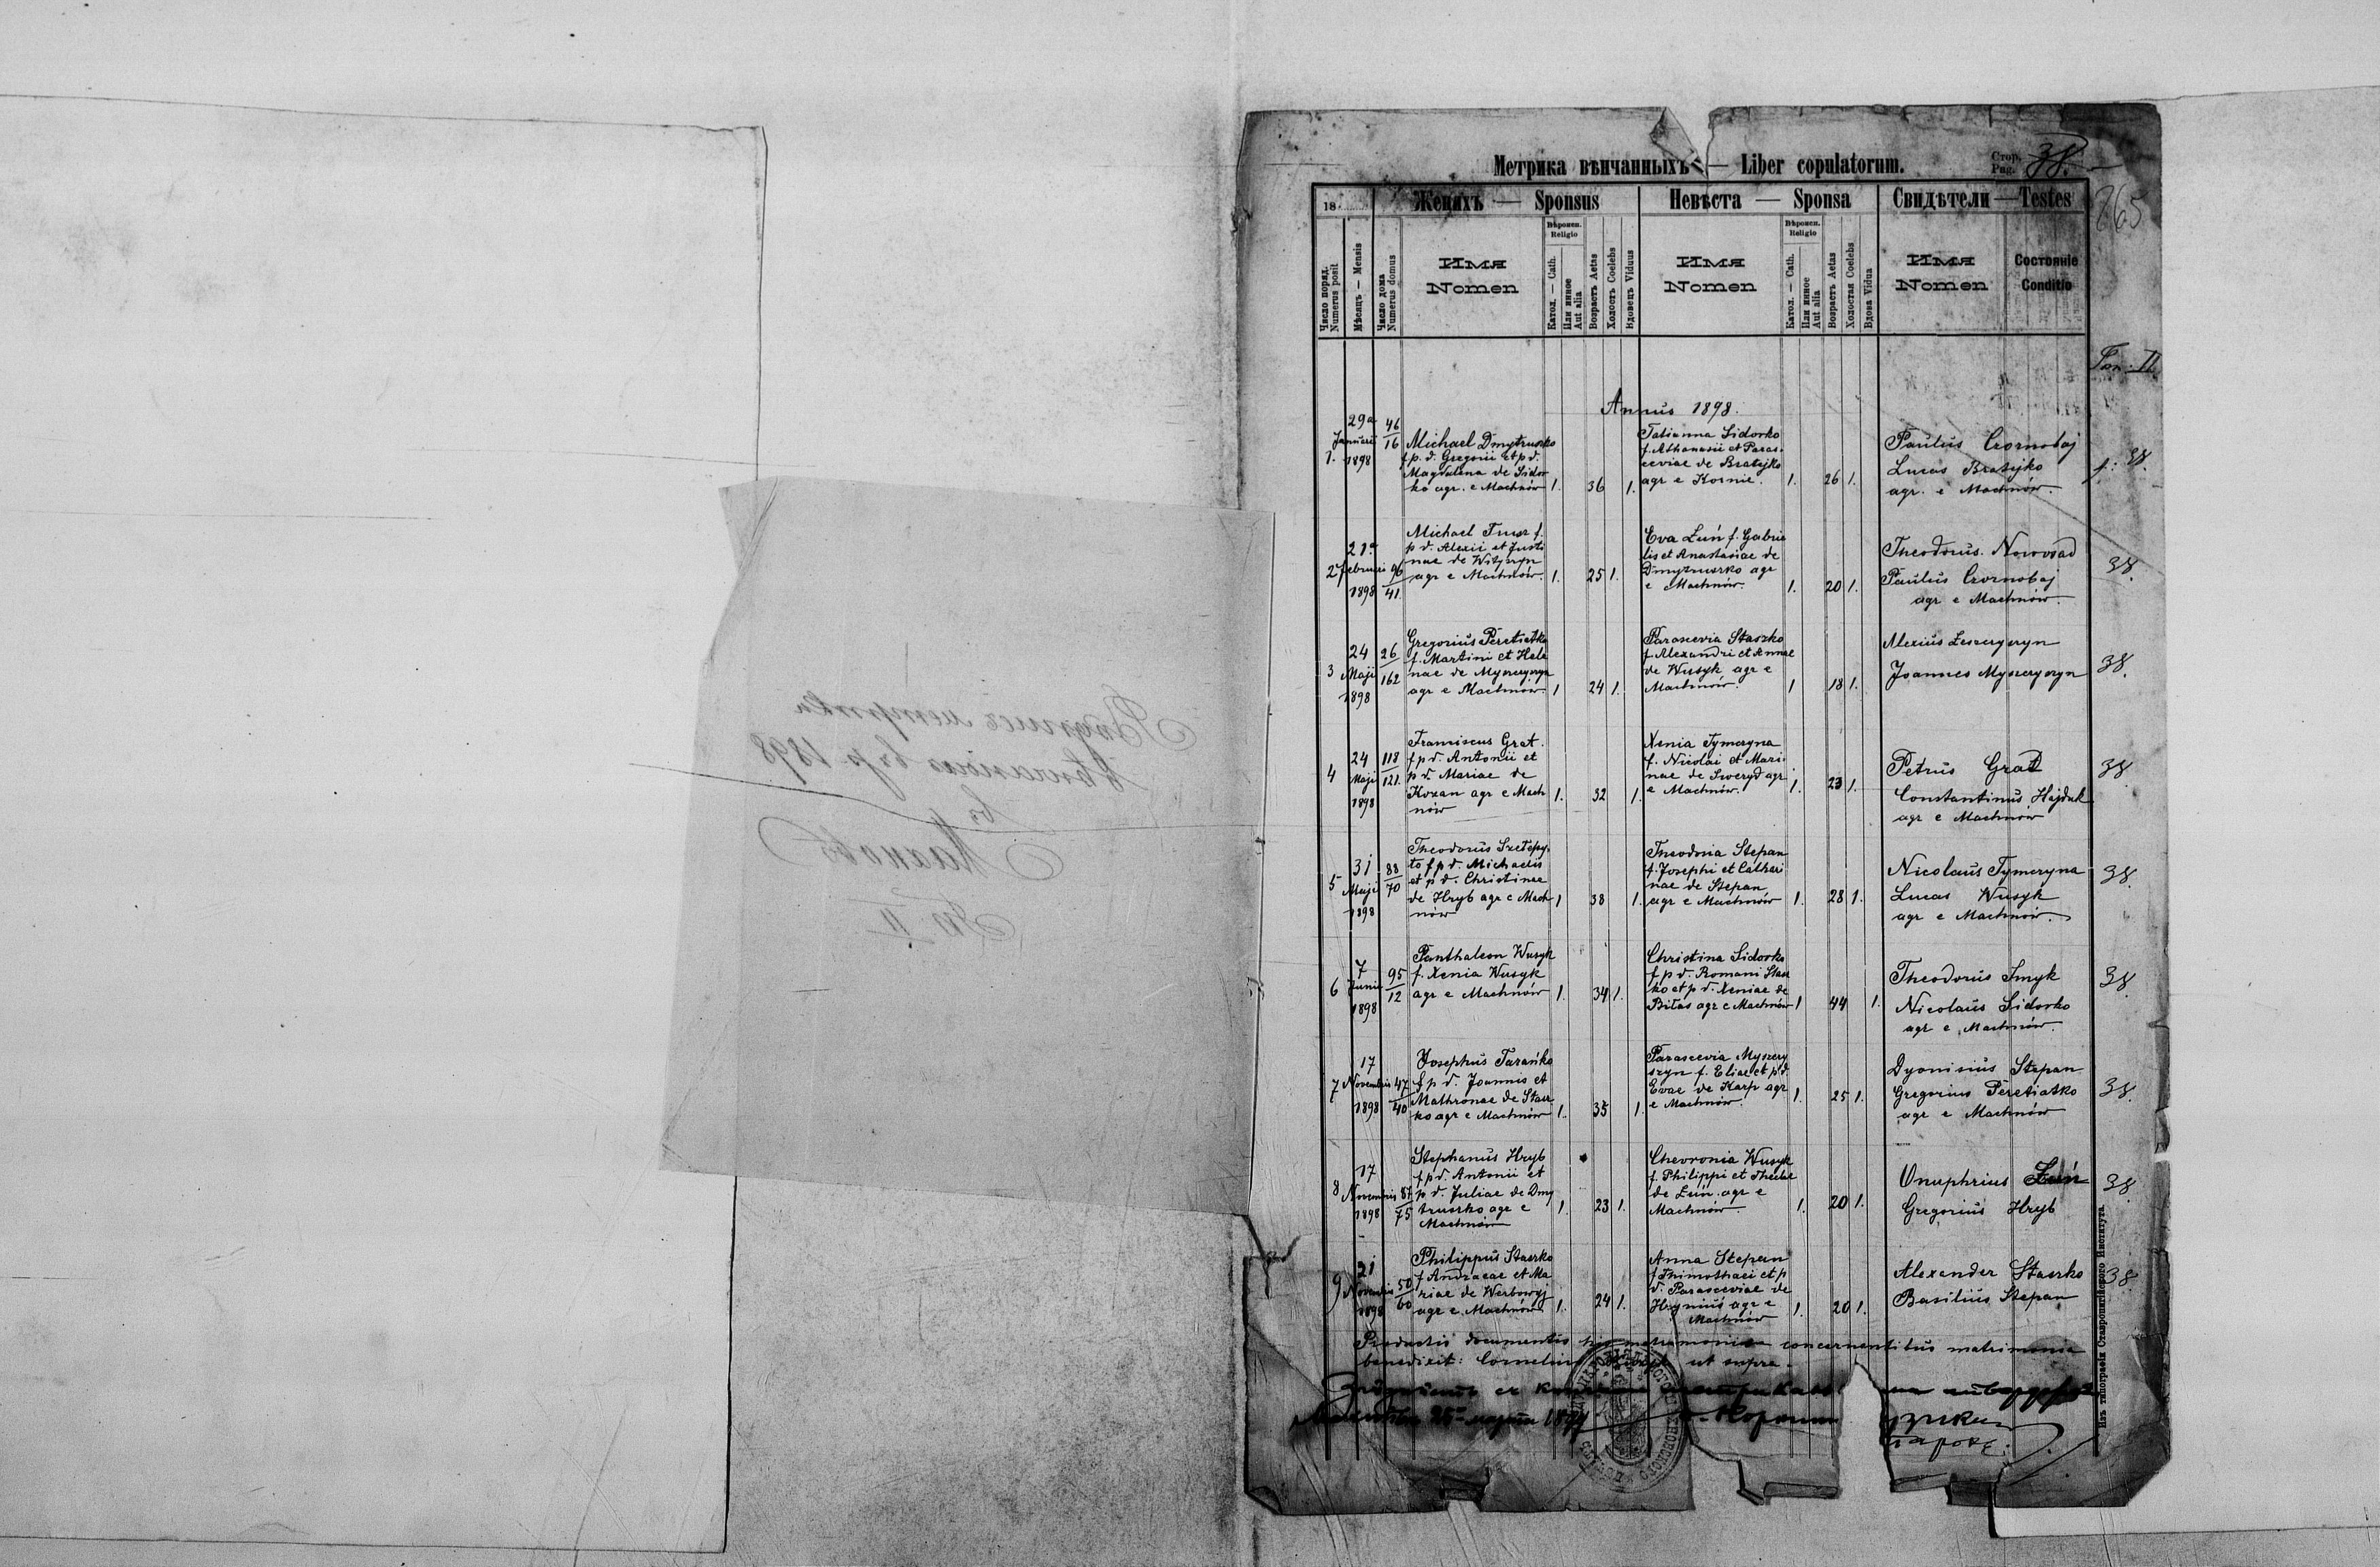 Метрика вѣнчанныхъ — Liber copulatorum.
Стор. Pag. 38.
265
18
Женихъ — Sponsus
Невѣста — Sponsa
Свидѣтели — Testes
Число поряд. Numerus posit
Мѣсяцъ — Mensis
Число дома Numerus domus
Имя Nomen
Вѣроисп. Religio
Катол. — Cath.
Или иное Aut alia
Возрастъ Aetas
Холостъ Coelebs
Вдовецъ Viduus
Имя Nomen
Вѣроисп. Religio
Катол. — Cath.
Или иное Aut alia
Возрастъ Aetas
Холостая Coelebs
Вдова Vidua
Имя Nomen
Состояніе Conditio
Tom. II
Annus 1898.
1. 29a Januarii 1898
46/16
Michael Dmytruszko
f. p. d. Gregorii et p d.
Magdalena de Sidor
ko agr. e Machnów 1. 36 1.
Tatianna Sidorko
f. Athanasii et Paras
ceviae de Bratejko
agr e Kornie. 1. 26 1.
Paulus Czornobaj
Lucas Bratejko
agr. e Machnów.
f: 38.
2 21a Februari 1898
96/41
Michael
p d. Alexii et Justi
nae de Witycyn
agr e Machnów. 1. 25 1.
Eva Luń f. Gabrie
lis et Anastasiae de
Dmytruszko agr
e Machnów. 1. 20 1.
Theodorus Nowosad
Paulus Czornobaj
agr e Machnów.
38.
3 24 Maji 1898
26/162
Gregorius Peretiatko
f. Martini et Hele
nae de Myszczyszyn
agr e Machnów 1 24 1.
Parascevia Staszko
f. Alexandri et Annae
de Wusyk agr e
Machnów. 1 18 1.
Alexius Leszczyszyn
Joannes Myszczyszyn
38.
4 24 Maji 1898
118/121.
Franciscus Grat.
f p d. Antonii et
p d. Mariae de
Kozan agr e Mach
nów 1. 32 1.
Xenia Tymczyna
f. Nicolai et Mari
nae de Sweryd agr
e Machnów. 1. 23 1.
Petrus Grat
Constantinus Hajduk
agr e Machnów
38
5 31 Maji 1898
88/70
Theodorus
to f p d. Michaelis
et p d. Christinae
de Hryb agr e Mach
nów 1 38 1.
Theodosia Stepan
f. Josephi et Catheri
nae de Stepan
agr e Machnów 1. 28 1.
Nicolaus Tymczyna
Lucas Wusyk
agr e Machnów.
38.
6 7 Junii 1898
95/12
Panthaleon Wusyk
f. Xenia Wusyk
agr e Machnów 1. 34 1.
Christina Sidorko
f p d. Romani Stasz
ko et p d. Xeniae de
Biłas agr e Machnów 1 44 1.
Theodorus Smyk
Nicolaus Sidorko
agr e Machnów.
38.
7 17 Novembris 1898
47/40
Josephus Tarańko
f p d. Joannis et
Mathronae de Stasz
ko agr e Machnów 1. 35 1.
Parascevia Myszczy
szyn f. Eliae et p d.
Evae de Karp agr
e Machnów. 1. 25 1.
Dyonisius Stepan
Gregorius Peretiatko
agr e Machnów
38.
8 17 Novembris 1898
87/75
Stephanus Hryb
f p d. Antonii et
p d. Juliae de Dmy
truszko agr e
Machnów 1. 23 1.
Chevronia Wusyk
f. Philippi et Theclae
de Luń agr e
Machnów. 1. 20 1.
Onuphrius Luń
Gregorius Hryb
38.
9 21 Novembris 1898
50/60
Philippus Staszko
f Andraeae et Ma
riae de Werbowyj
agr e Machnów 1. 24 1.
Anna Stepan
f Thimothaei et p
d. Parasceviae de
Hryniuś agr e
Machnów 1. 20 1.
Alexander Staszko
Basilius Stepan
38
Productis documentis matrimonia concernentibus matrimonia
benedixit: Cornelius ut supra.
25 марта 1899
Изъ типографіи Ставропигійского Института.
Подпись метрики
вѣнчаныхъ въ р. 1898
въ
Махновѣ
Т. II